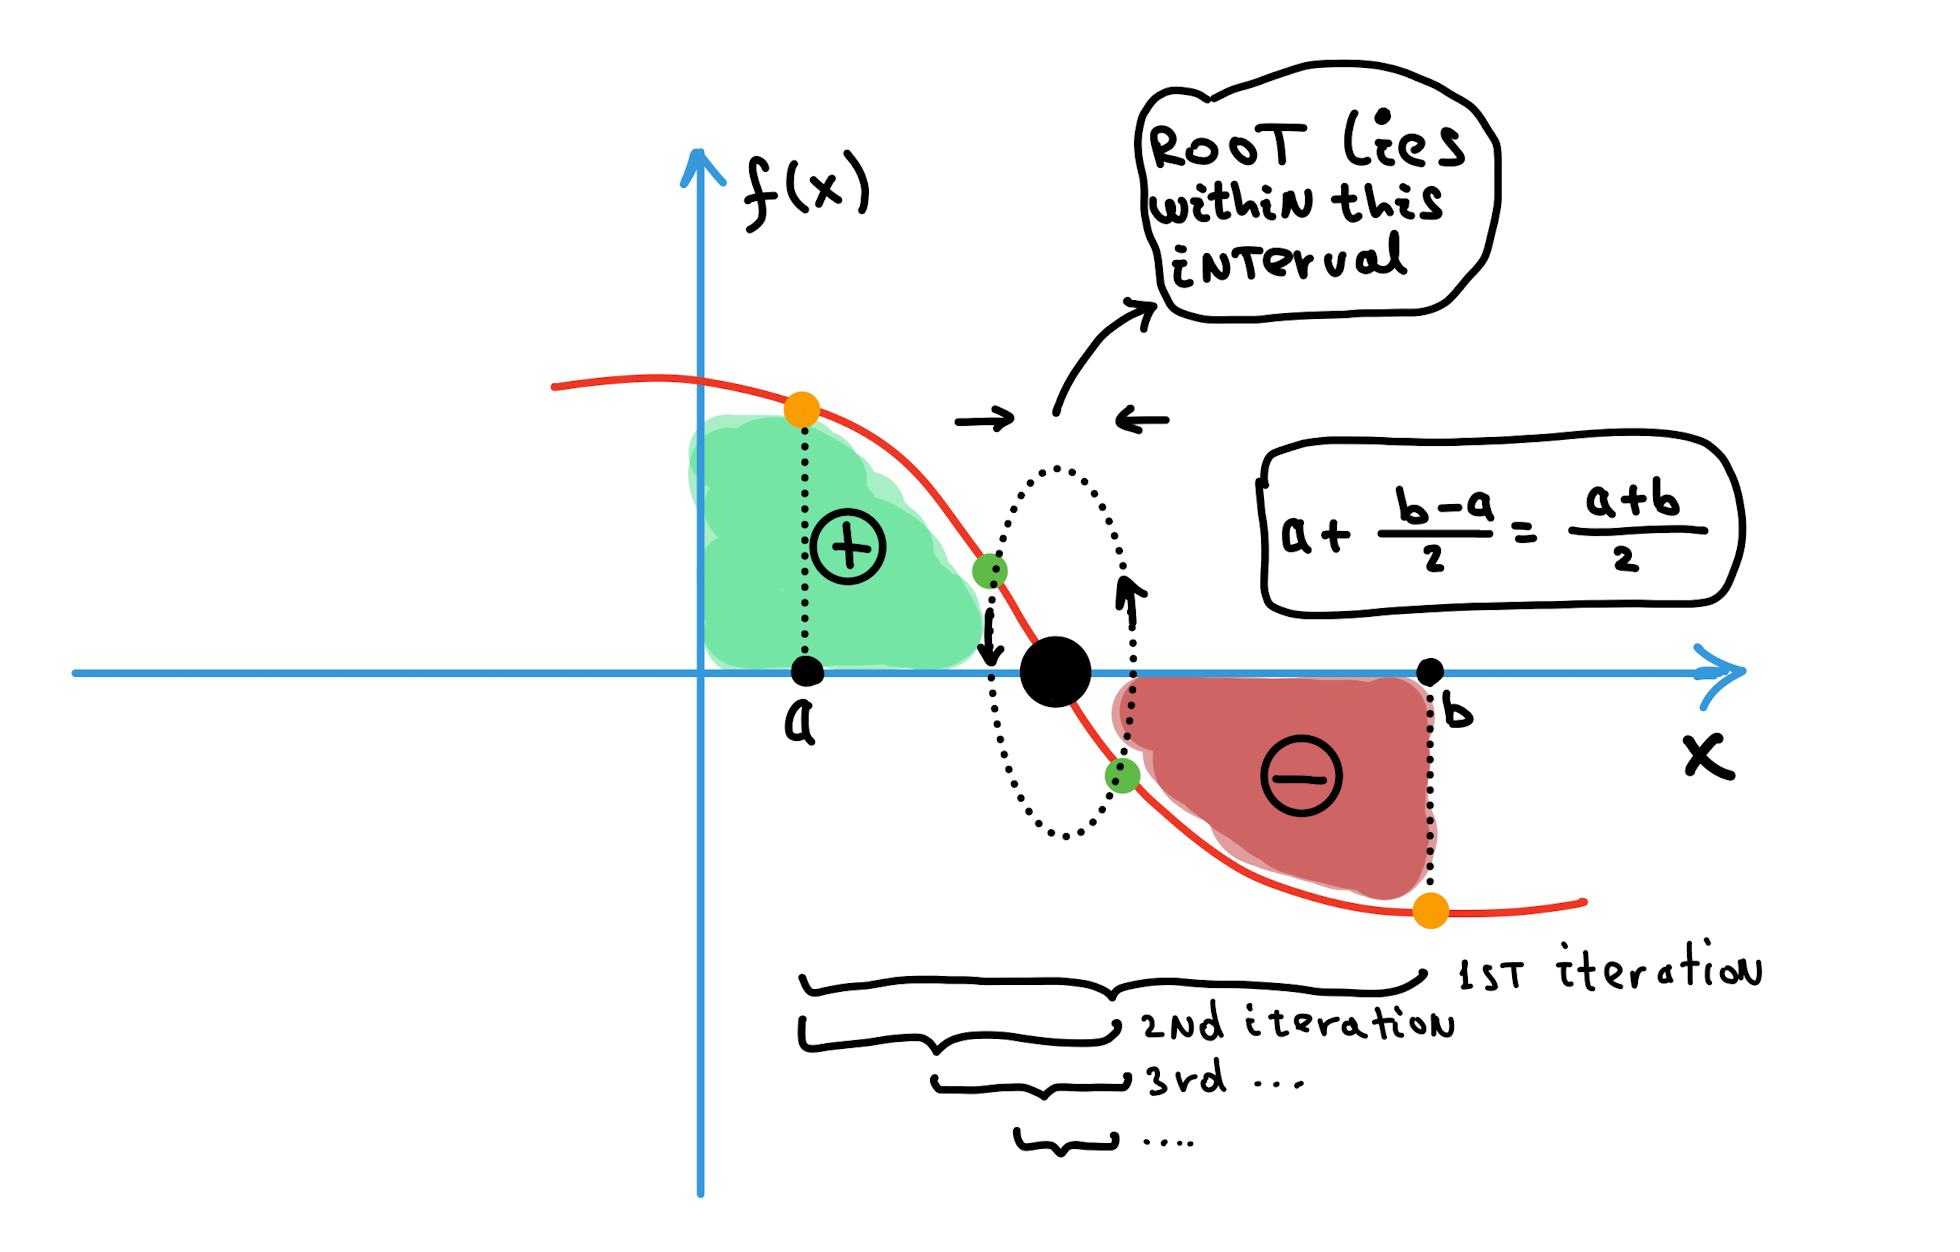 f(x)
ROOT lies
within this
interval
a + b-a/2 = a+b/2
+
a
b
-
x
1ST iteration
2nd iteration
3rd ...
....